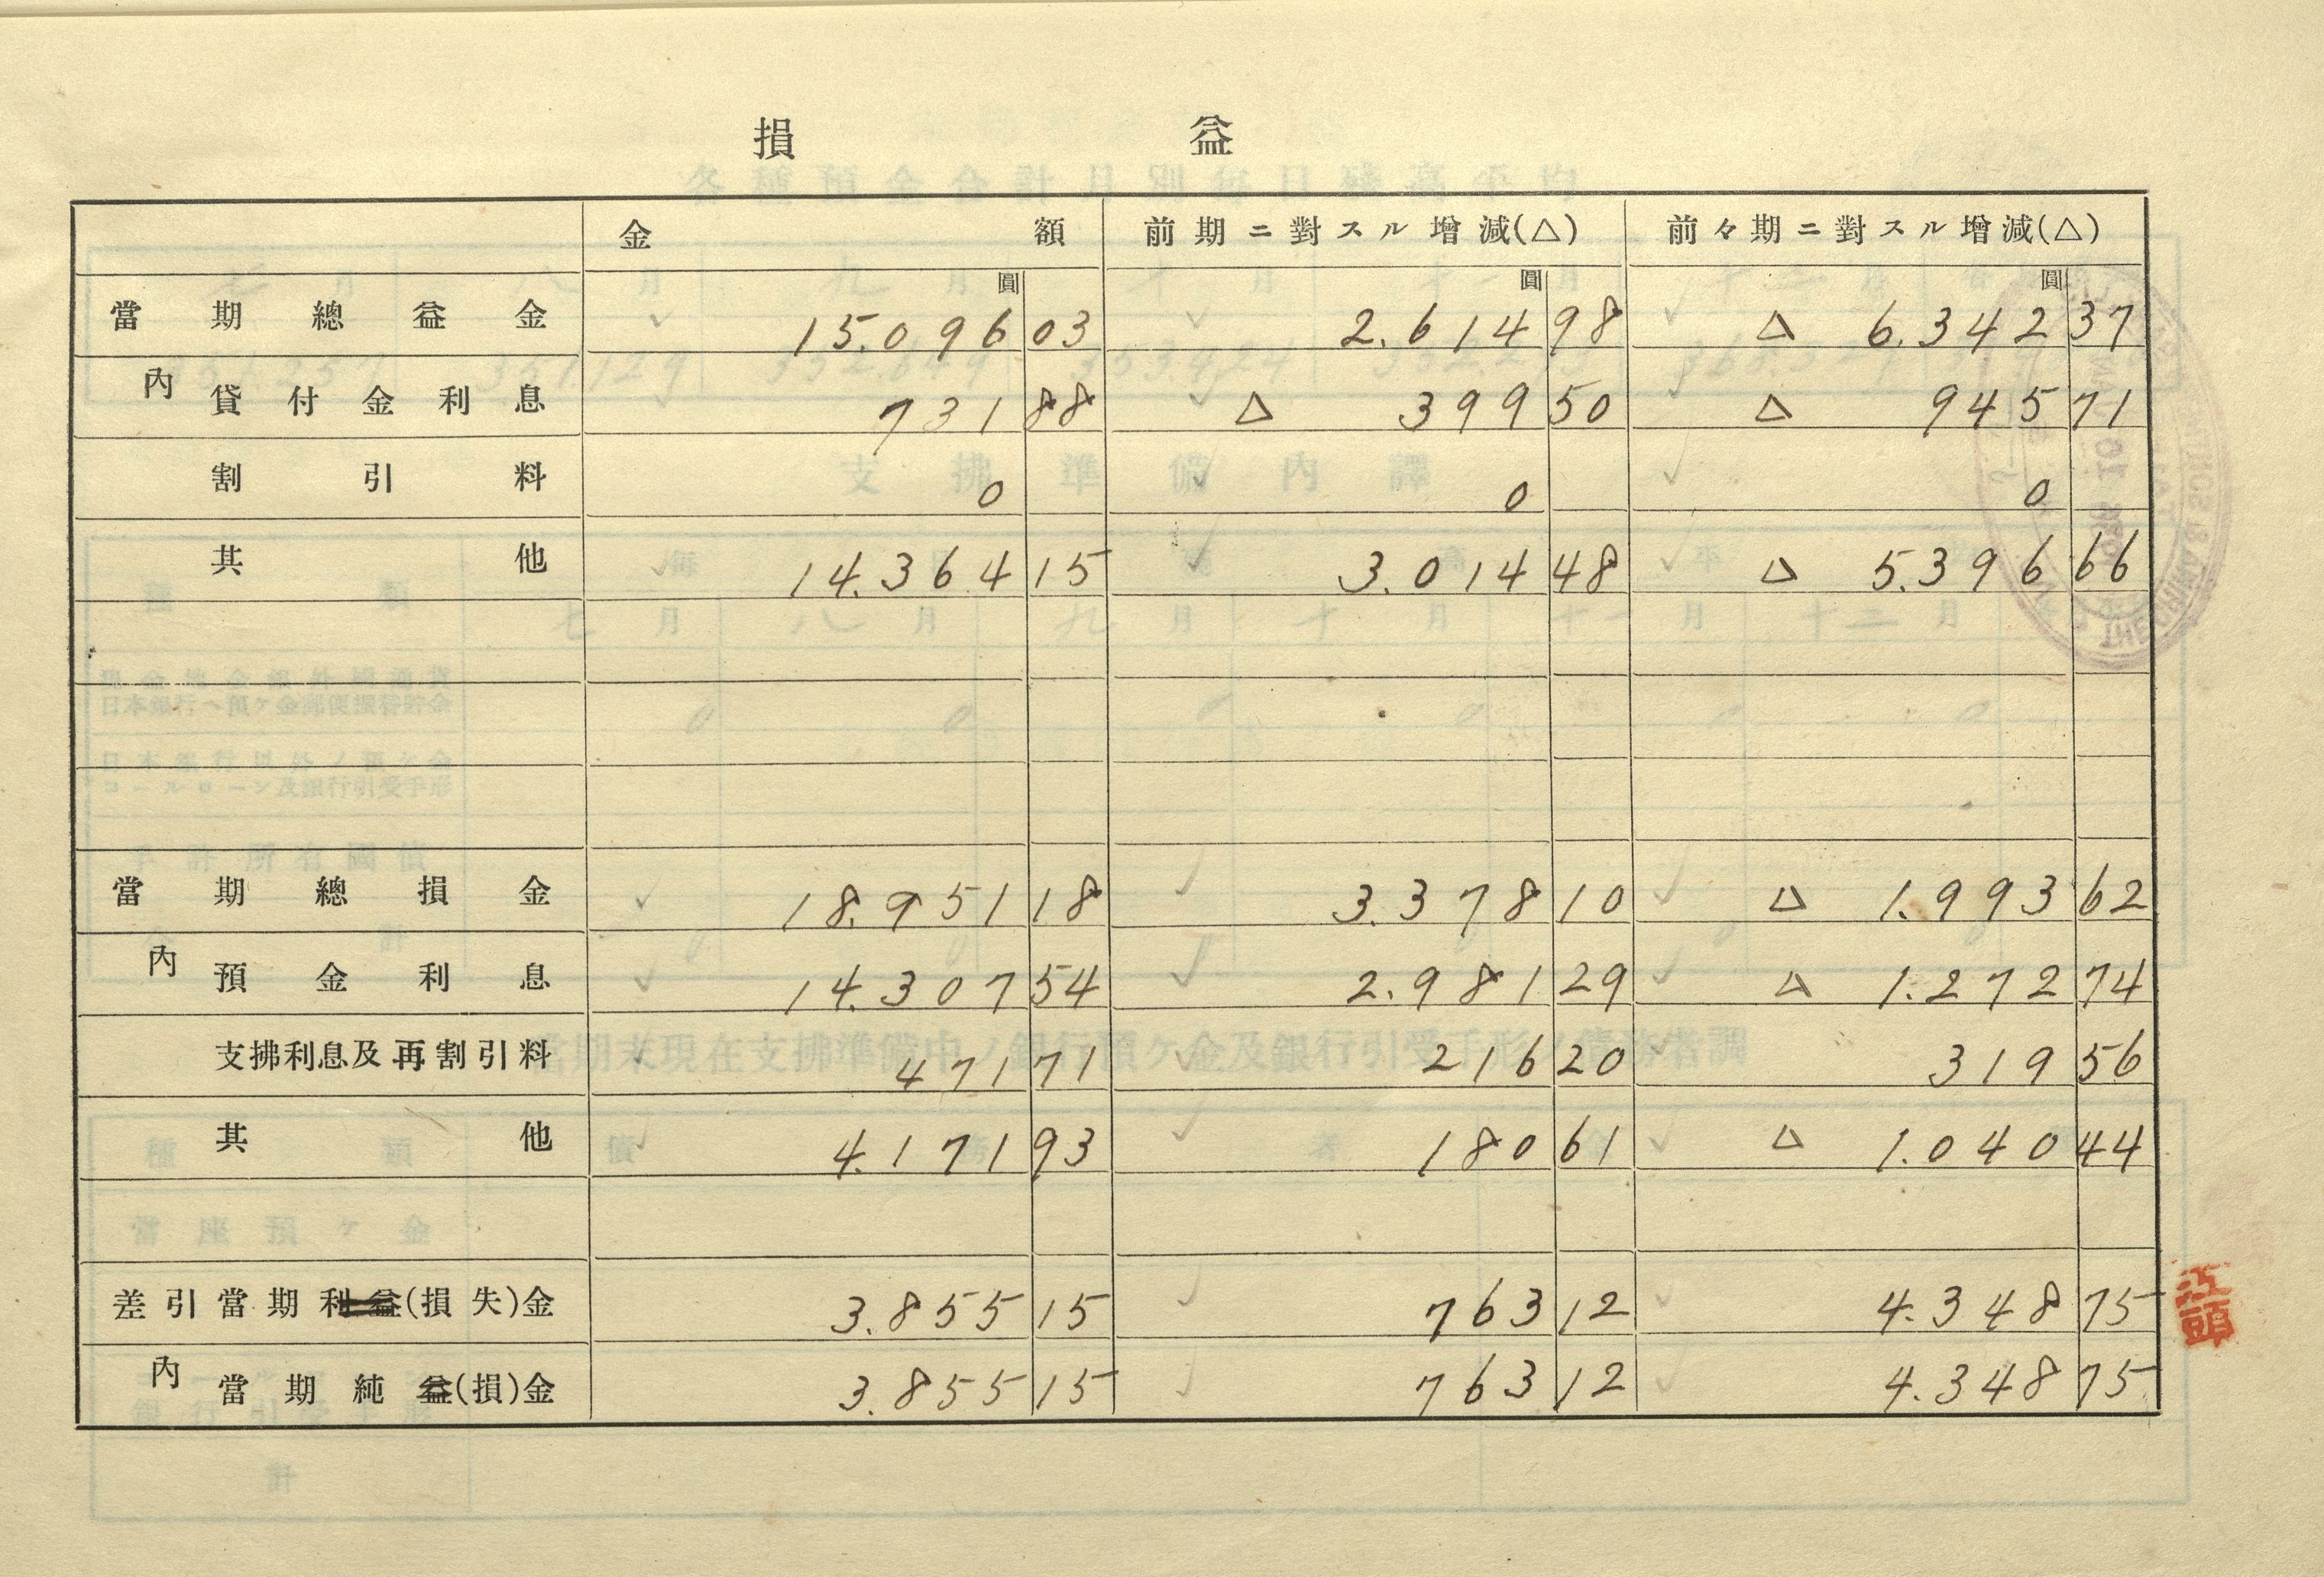 損 益
金額 前期ニ對スル增減(△) 前々期ニ對スル增減(△)
圓 圓 圓
當期總益金 15.096 03 2.614 98 △ 6.342 37
內 貸付金利息 731 88 △ 399 50 △ 945 71
割引料 0 0 0
其他 14.364 15 3.014 48 △ 5.396 66
當期總損金 18.951 18 3.378 10 △ 1.993 62
內 預金利息 14.307 54 2.981 29 △ 1.272 74
支拂利息及再割引料 471 71 216 20 319 56
其他 4.171 93 180 61 △ 1.040 44
差引當期利益(損失)金 3.855 15 763 12 4.348 75
內 當期純益(損)金 3.855 15 763 12 4.348 75
江頭